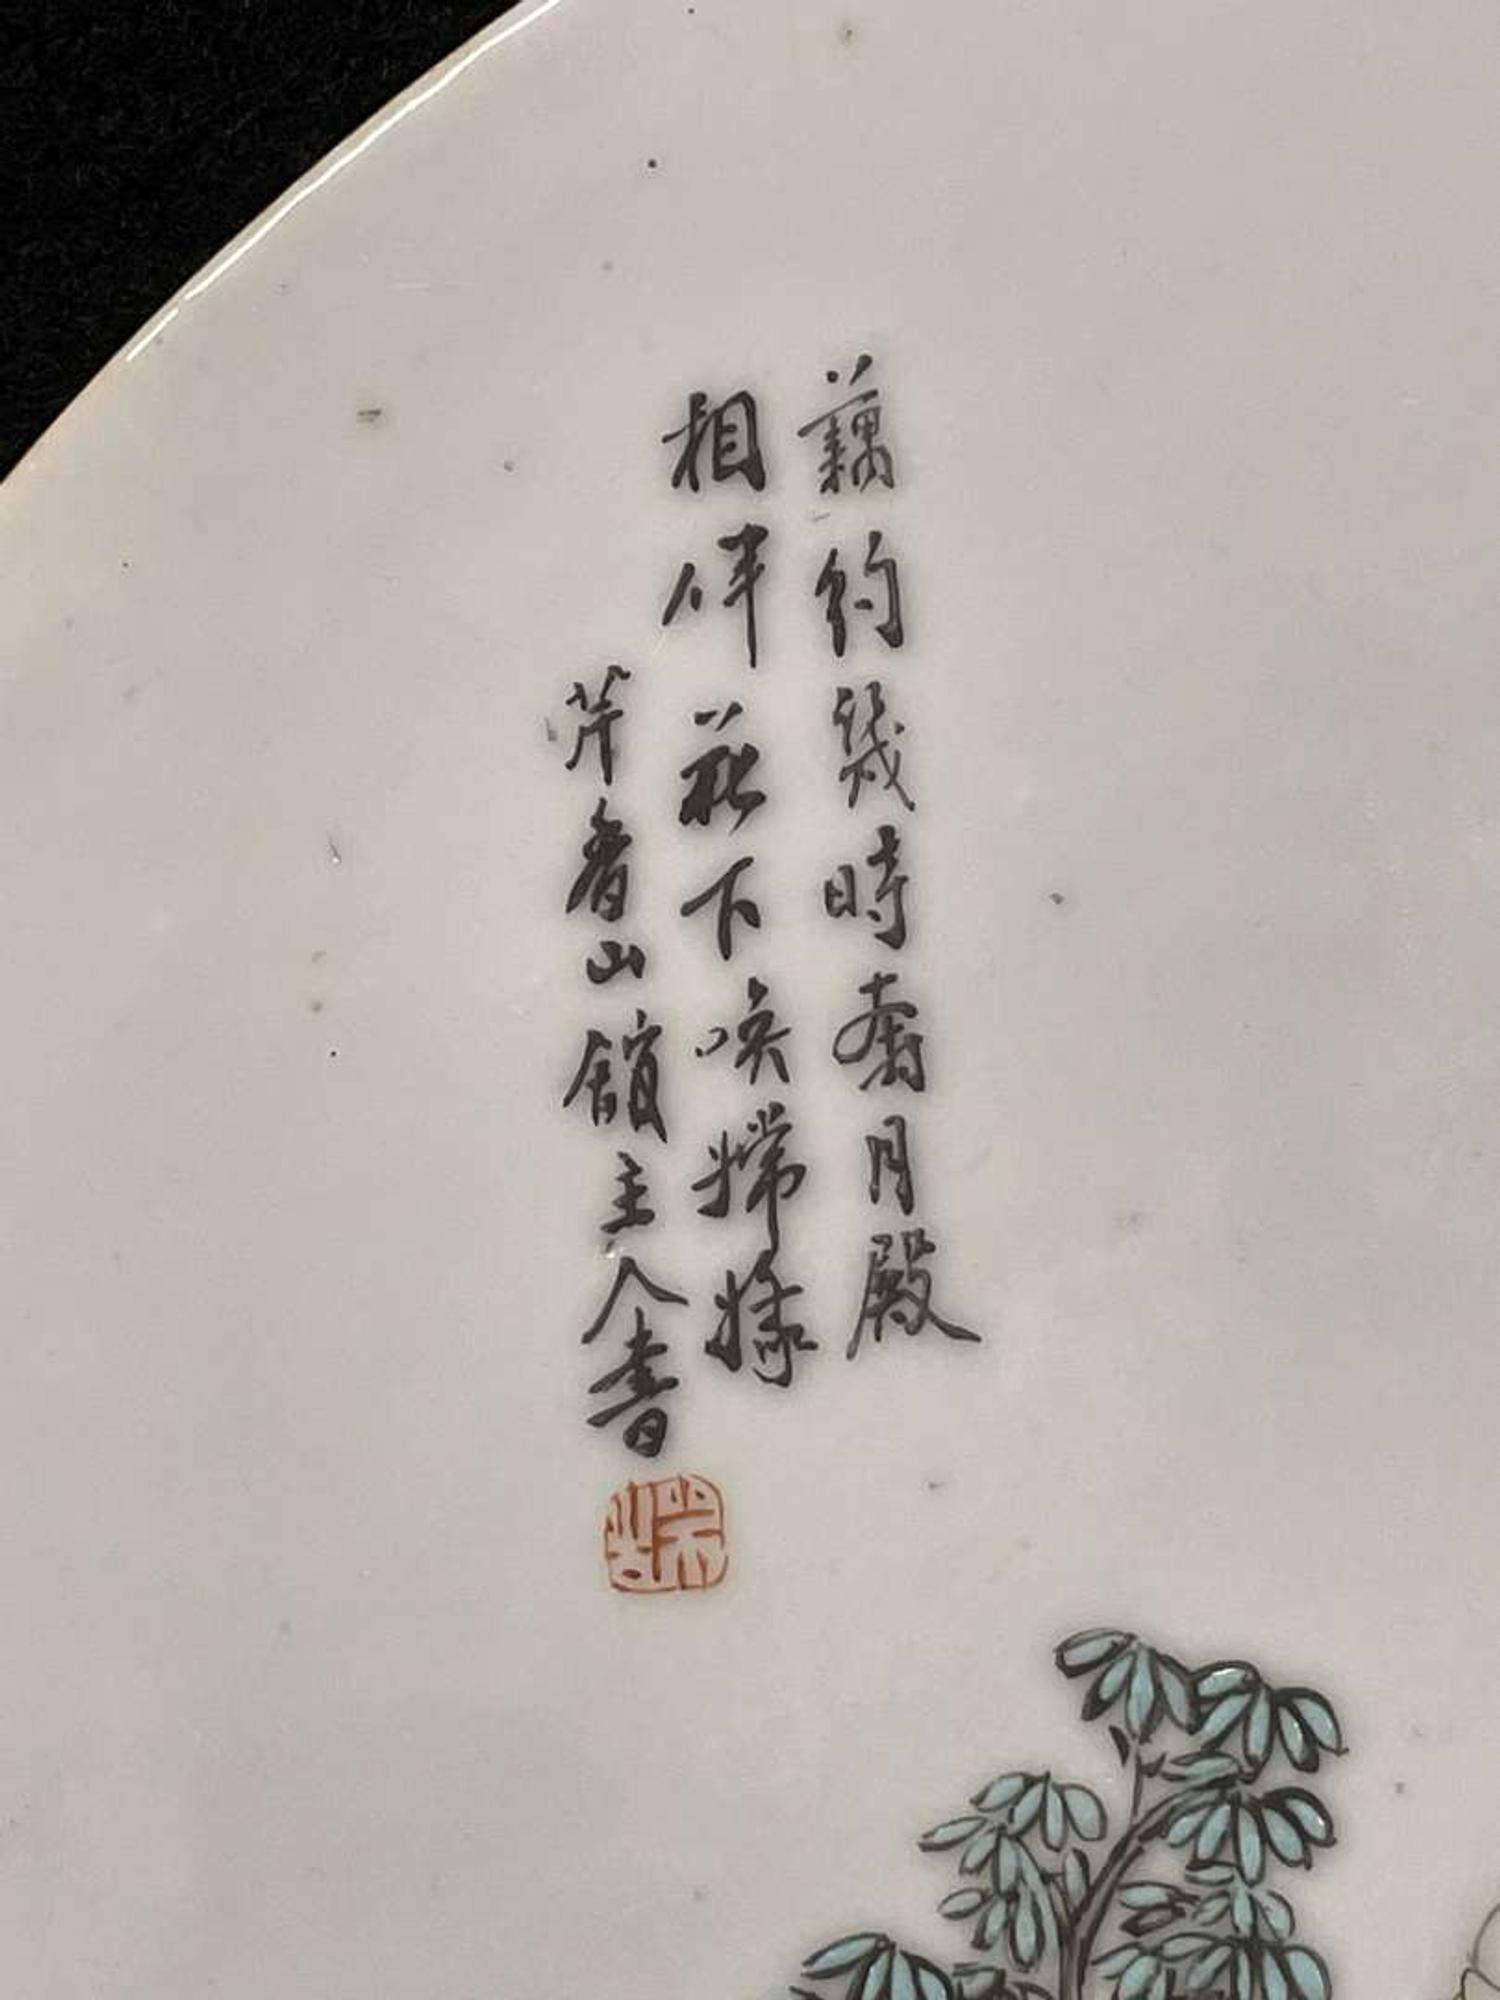 藕約幾時奔月殿
相伴花下喚嫦娥
芹香山館主人書